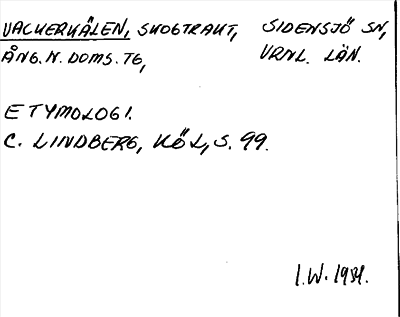 VACKERKÄLEN, SKOGTRAKT, SIDENSJÖ SN,
ÅNG. N. DOMS. TG, VRNL. LÄN.
ETYMOLOGI.
C. LINDBERG, KÖL, S. 99.
I.W. 1939.